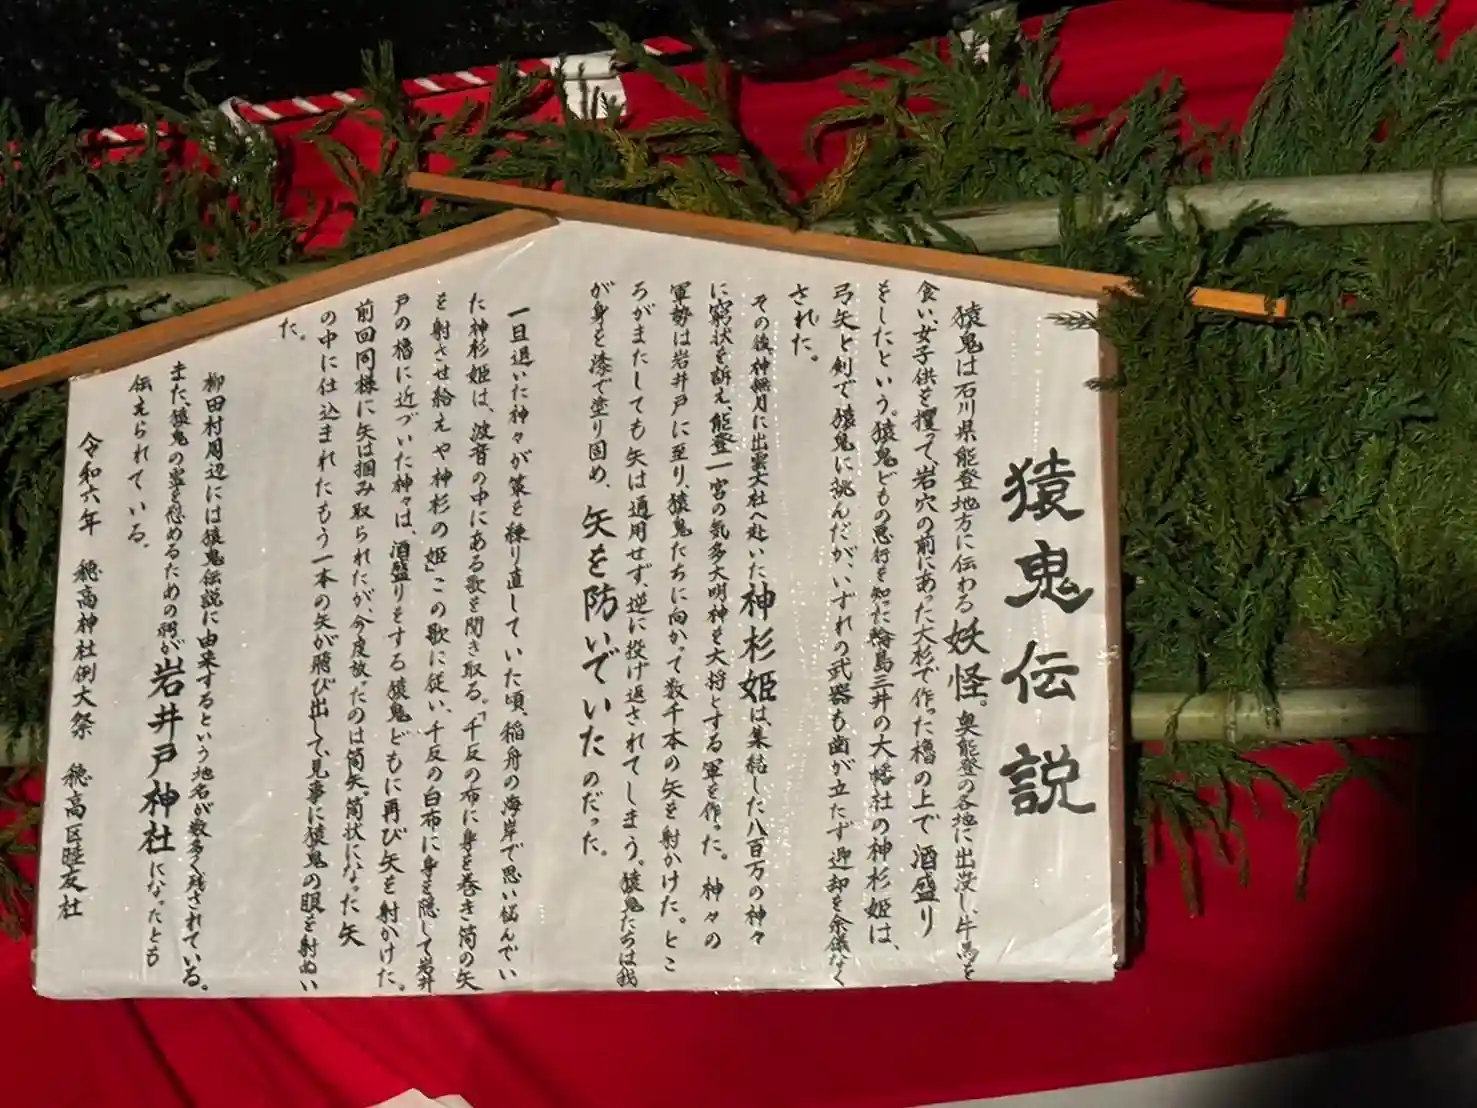 猿鬼伝説
猿鬼は石川県能登地方に伝わる妖怪。奥能登の各地に出没し、牛馬を
食い、女子供を攫って、岩穴の前にあった大杉で作った櫓の上で酒盛り
をしたという。猿鬼どもの悪行を知った輪島三井の大幡社の神杉姫は、
弓矢と剣で猿鬼に挑んだが、いずれの武器も歯が立たず迎却を余儀なく
された。
その後、神無月に出雲大社へ赴いた神杉姫は、集結した八百万の神々
に窮状を訴え、能登一宮の気多大明神を大将とする軍を作った。神々の
軍勢は岩井戸に至り、猿鬼たちに向かって数千本の矢を射かけた。とこ
ろがまたしても矢は通用せず、逆に投げ返されてしまう。猿鬼たちは我
が身を漆で塗り固め、矢を防いでいたのだった。
一旦退いた神々が策を練り直していた頃、稲舟の海岸で思い悩んでい
た神杉姫は、波音の中にある歌を聞き取る。「千反の布に身を巻き筒の矢
を射させ給えや神杉の姫」この歌に従い、千反の白布に身を隠して岩井
戸の櫓に近づいた神々は、酒盛りをする猿鬼どもに再び矢を射かけた。
前回同様に矢は掴み取られたが、今度放たのは筒矢。筒状になった矢
の中に仕込まれたもう一本の矢が飛び出して、見事に猿鬼の眼を射ぬい
た。
柳田村周辺には猿鬼伝説に由来するという地名が数多く残されている。
また、猿鬼の霊を慰めるための祠が岩井戸神社になったとも
伝えられている。
令和六年 穂高神社例大祭 穂高区睦友社